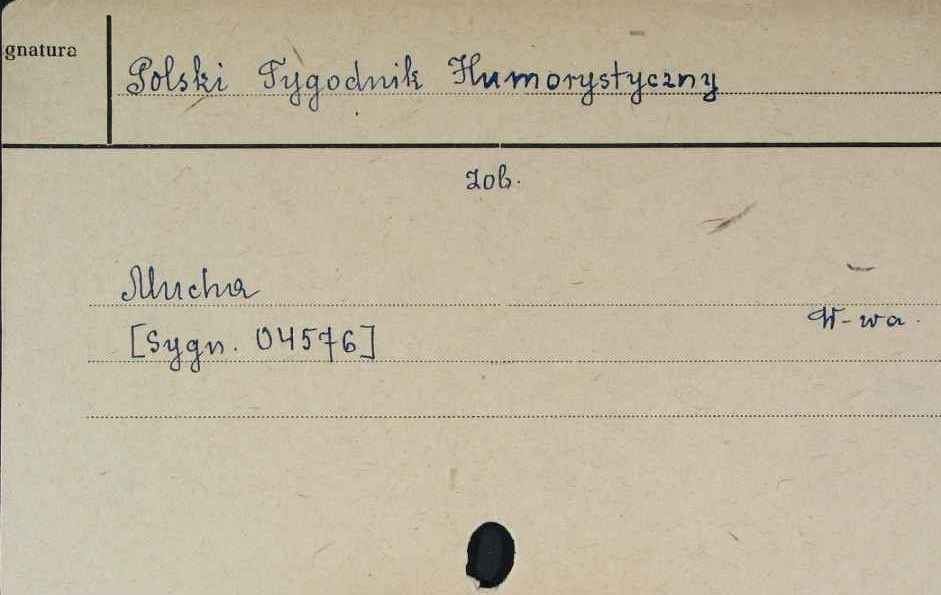 gnatura
Polski Tygodnik Humorystyczny
zob.
Mucha
W-wa.
[Sygn. 04576]